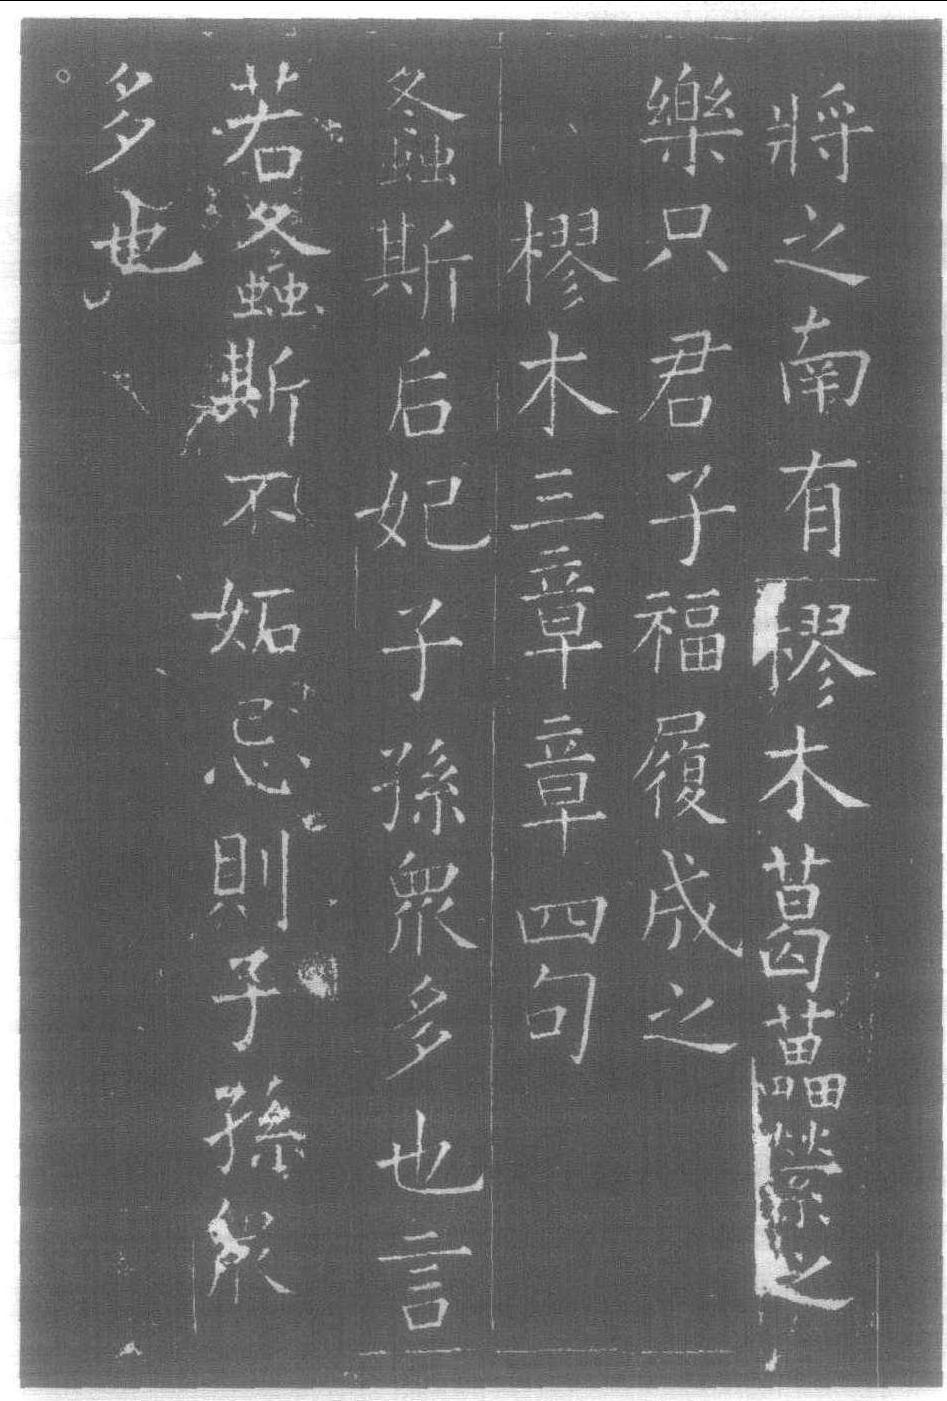 將之南有樛木葛藟縈之
樂只君子福履成之
樛木三章章四句
螽斯后妃子孫眾多也言
若螽斯不妬忌則子孫眾
多也